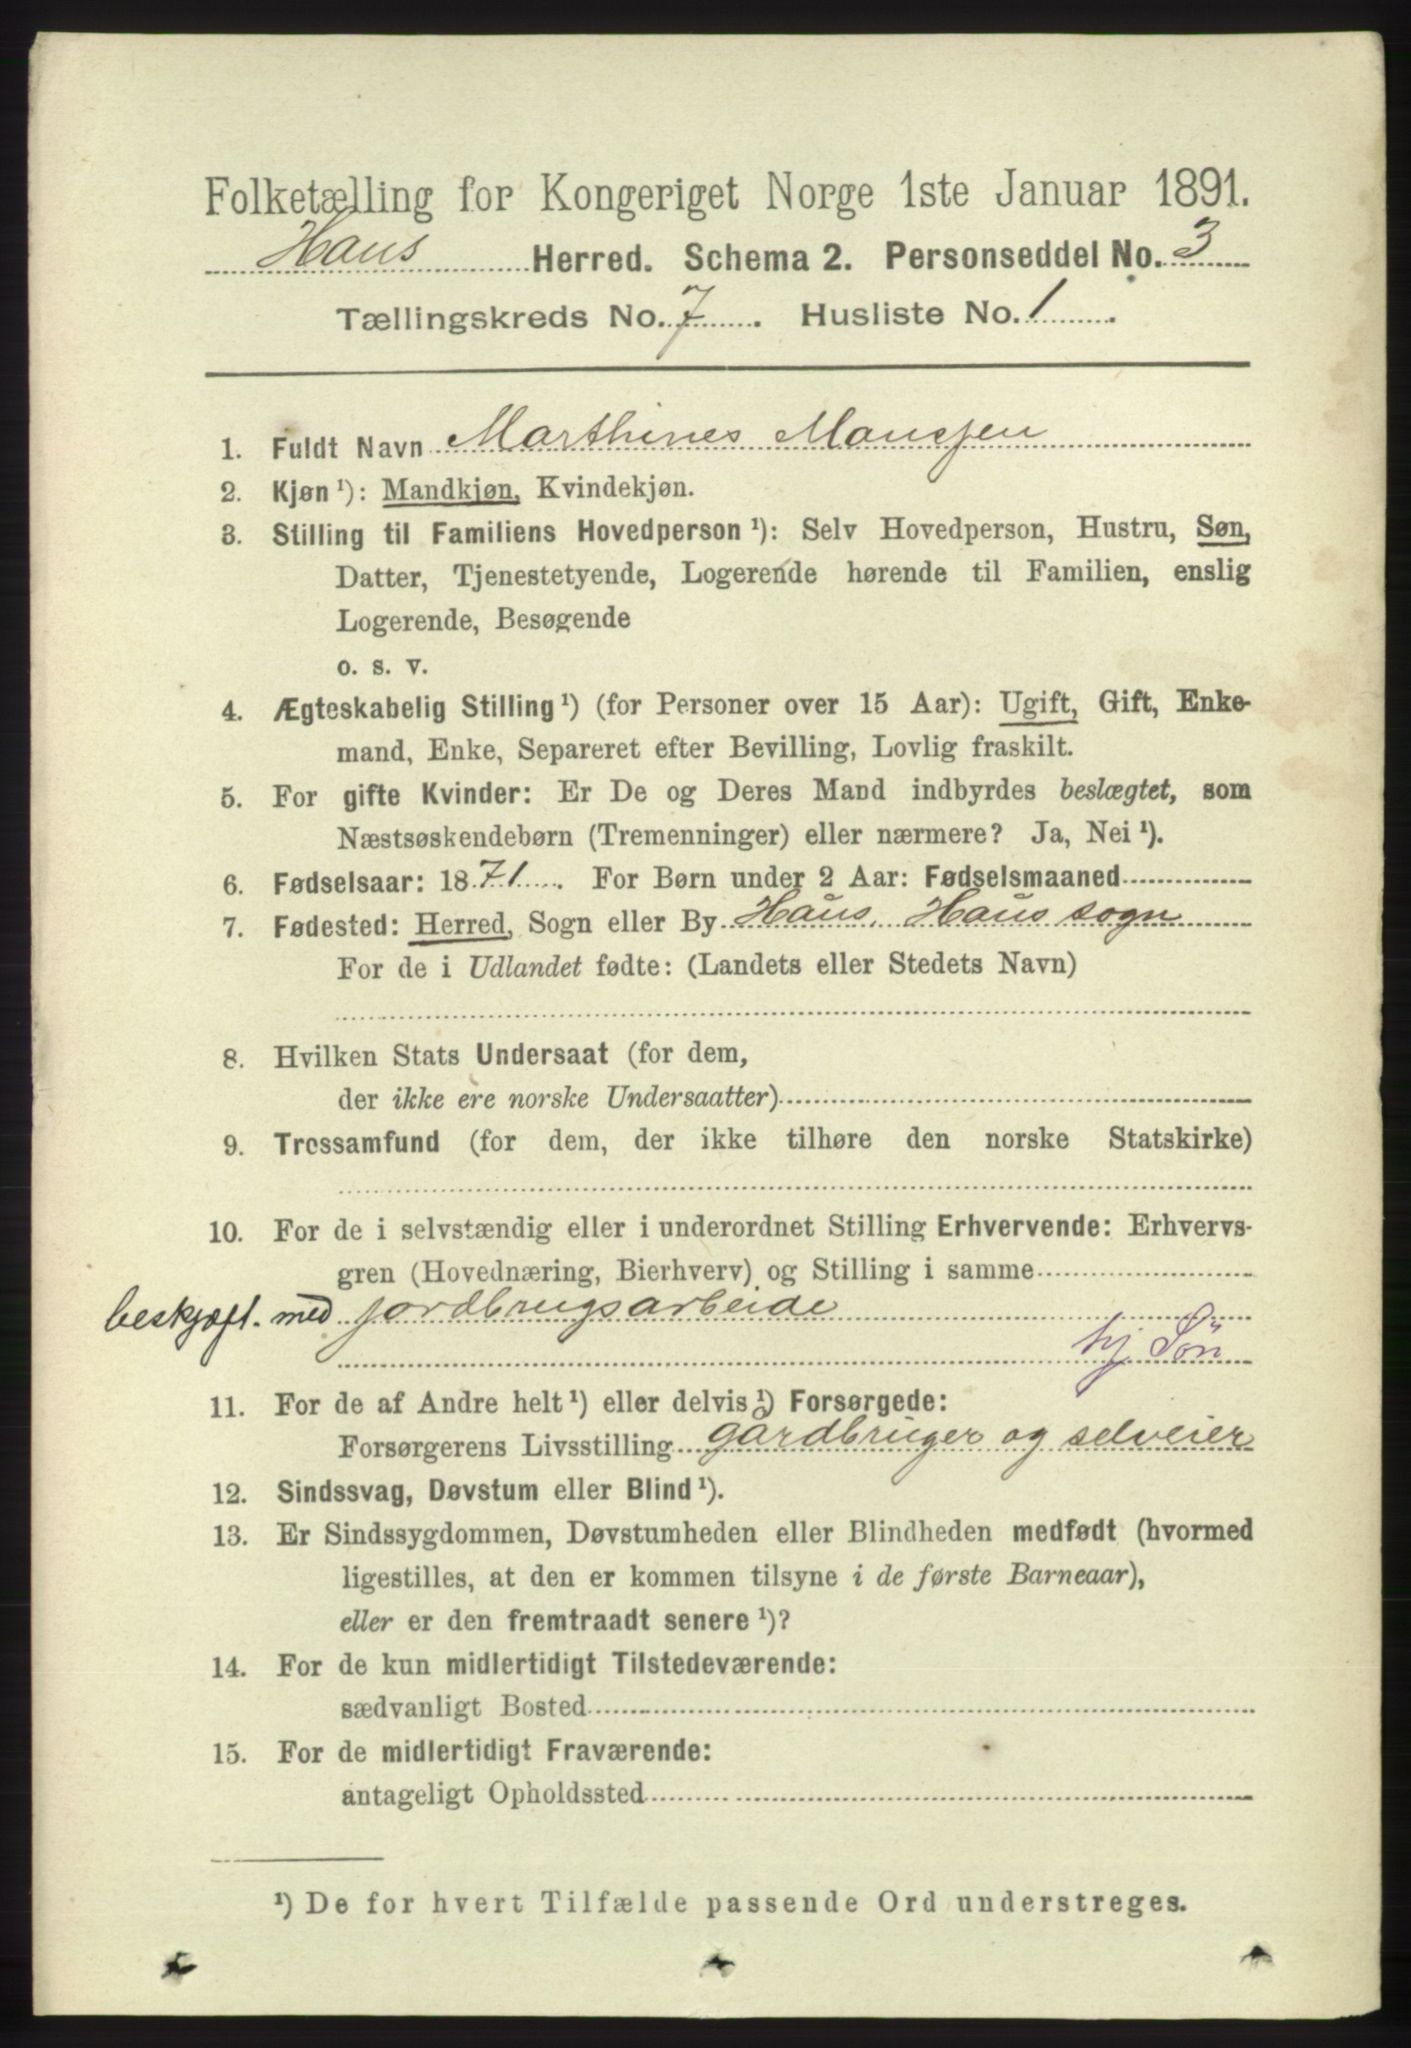 Folketælling for Kongeriget Norge 1ste Januar 1891.
Haus Herred. Schema 2. Personseddel No. 3
Tællingskreds No. 7. Husliste No. 1.
1. Fuldt Navn Marthines Monssen
2. Kjøn ¹): Mandkjøn, Kvindekjøn.
3. Stilling til Familiens Hovedperson ¹): Selv Hovedperson, Hustru, Søn,
Datter, Tjenestetyende, Logerende hørende til Familien, enslig
Logerende, Besøgende
o. s. v.
4. Ægteskabelig Stilling ¹) (for Personer over 15 Aar): Ugift, Gift, Enke-
mand, Enke, Separeret efter Bevilling, Lovlig fraskilt.
5. For gifte Kvinder: Er De og Deres Mand indbyrdes beslægtet, som
Næstsøskendebørn (Tremenninger) eller nærmere? Ja, Nei ¹).
6. Fødselsaar: 1871. For Børn under 2 Aar: Fødselsmaaned
7. Fødested: Herred, Sogn eller By Haus, Haus sogn
For de i Udlandet fødte: (Landets eller Stedets Navn)
8. Hvilken Stats Undersaat (for dem,
der ikke ere norske Undersaatter)
9. Trossamfund (for dem, der ikke tilhøre den norske Statskirke)
10. For de i selvstændig eller i underordnet Stilling Erhvervende: Erhvervs-
gren (Hovednæring, Bierhverv) og Stilling i samme
beskjæft. med jordbrugsarbeide
hj Søn
11. For de af Andre helt ¹) eller delvis ¹) Forsørgede:
Forsørgerens Livsstilling gårdbruger og selveier
12. Sindssvag, Døvstum eller Blind ¹).
13. Er Sindssygdommen, Døvstumheden eller Blindheden medfødt (hvormed
ligestilles, at den er kommen tilsyne i de første Barneaar),
eller er den fremtraadt senere ¹)?
14. For de kun midlertidigt Tilstedeværende:
sædvanligt Bosted
15. For de midlertidigt Fraværende:
antageligt Opholdssted
¹) De for hvert Tilfælde passende Ord understreges.